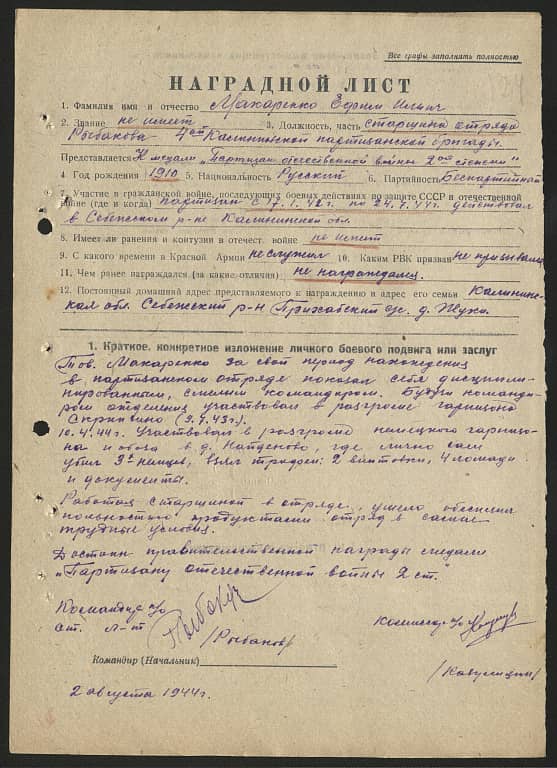 Все графы заполнять полностью
НАГРАДНОЙ ЛИСТ
1. Фамилия имя и отчество Макаренко Ефрем
2. Звание не имеет 3. Должность, часть старшина отряда
Рыбакова 4ой Калининской партизанской бригады.
Представляется К медали „Партизан отечественной войны 2ой степени"
4. Год рождения 1910 5. Национальность Русский 6. Партийность Беспартийный
7. Участие в гражданской войне, последующих боевых действиях по защите СССР и отечественной
войне (где и когда) партизан с 17.1.42г. по 24.7.44г. действовал
в Себежском р-не Калининской обл.
8. Имеет ли ранения и контузии в отечест. войне не имеет
9. С какого времени в Красной Армии не служил 10. Каким РВК призван не призывался
11. Чем ранее награждался (за какие отличия) не награждался.
12. Постоянный домашний адрес представляемого к награждению и адрес его семьи Калининс-
кая обл. Себежский р-н с/с. д. Жуки.
1. Краткое, конкретное изложение личного боевого подвига или заслуг
Тов. Макаренко за свой период нахождения
в партизанском отряде показал себя дисципли-
нированным, смелым командиром. Будучи команди-
ром отделения участвовал в разгроме гарнизона
(3.7.43г.).
10.4.44г. Участвовал в разгроме немецкого гарнизо-
на и обоза в д. где лично сам
убил 3х немцев, взял трофеи: 2 винтовки, 4 лошади
и документы.
Работая старшиной в отряде, умело обеспечил
полностью продуктами отряд в самые
трудные условия.
Достоин правительственной награды медали
„Партизану отечественной войны 2 ст."
Командир п/о
ст. л-т /Рыбаков/
Комиссар п/о
Командир (Начальник)
2 августа 1944г.